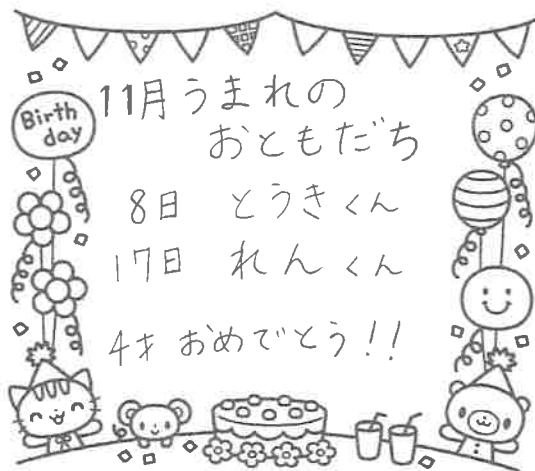 Birth
day
11月うまれの
おともだち
8日 とうきくん
17日 れんくん
4才 おめでとう!!